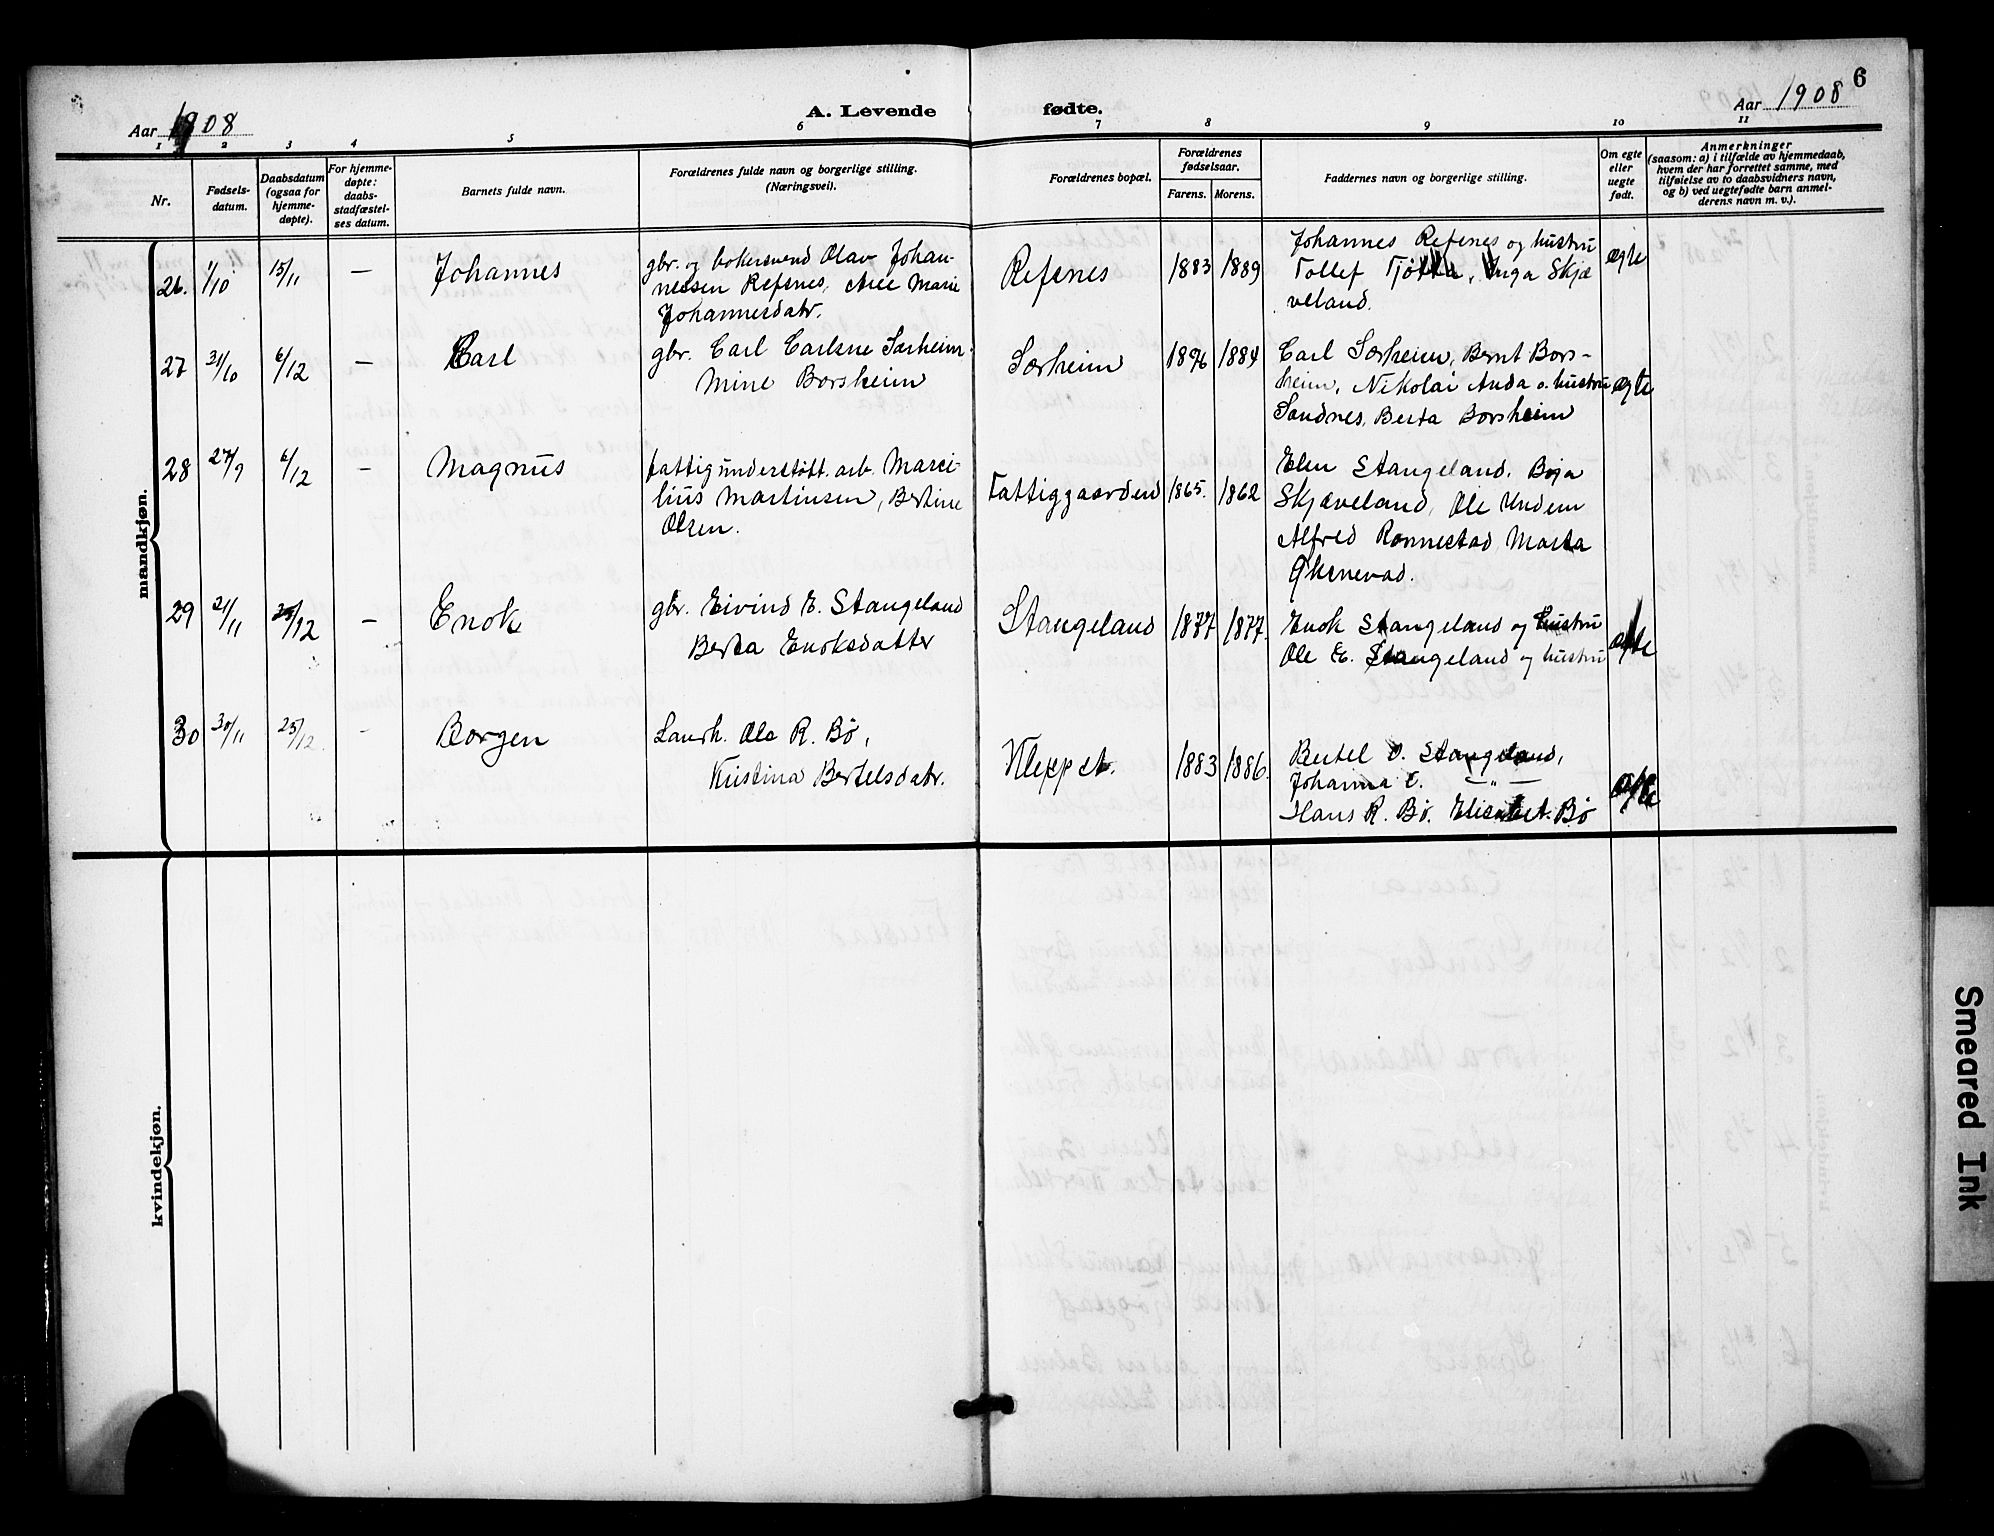 6
Aar 1908
A. Levende fødte.
Aar 1908
1 2 3 4 5 6 7 8 9 10 11
Nr.
Fødsels-
datum.
Daabsdatum
(ogsaa for
hjemme-
døpte).
For hjemme-
døpte:
daabs-
stadfæstel-
ses datum.
Barnets fulde navn.
Forældrenes fulde navn og borgerlige stilling.
(Næringsvei).
Forældrenes bopæl.
Forældrenes
fødselsaar.
Farens. Morens.
Faddernes navn og borgerlige stilling.
Om egte
eller
uegte
født.
Anmerkninger
(saasom: a) i tilfælde av hjemmedaab,
hvem der har forrettet samme, med
tilføielse av to daabsvidners navn,
og b) ved uegtefødte barn anmel-
derens navn m. v.).
mandkjøn.
26. 1/10 15/11 — Johannes
gbr. og Olav Johan-
nessen Refsnes, Marie
Johannesdatr.
Refsnes 1883 1889
Johannes Refsnes og hustru
Tollef Tjøtta, Inga Skjæ
veland.
ægte
27 31/10 6/12 — Carl
gbr. Carl Carlsne Særheim
Mine Borsheim
Særheim 1876 1884
Carl Særheim, Bernt Bors-
heim, Nikolai Anda o. hustru
Sandnes, Berta Borsheim
ægte
28 27/9 6/12 — Magnus
fattigunderstøtt. arb. Marci-
lius Martinsen, Bertine
Olsen.
Fattiggaarden 1865. 1862
Elen Stangeland.
Skjæveland, Ole Undem
Alfred Rønnestad Marta
29 21/11 25/12 — Enok
gbr. Eivind E. Stangeland
Berta Enoksdatter
Stangeland 1877 1877.
Enok Stangeland og hustru
Ole E. Stangeland og hustru
ægte
30 30/11 25/12 — Borgen
Landh. Ole R. Bø,
Kristina Bertelsdatr.
Kleppet. 1883 1886.
Bertel O. Stangeland,
Johanna E. — " —
Hans R. Bø. Elisabet. Bø
ægte
kvindekjøn.
Smeared Ink